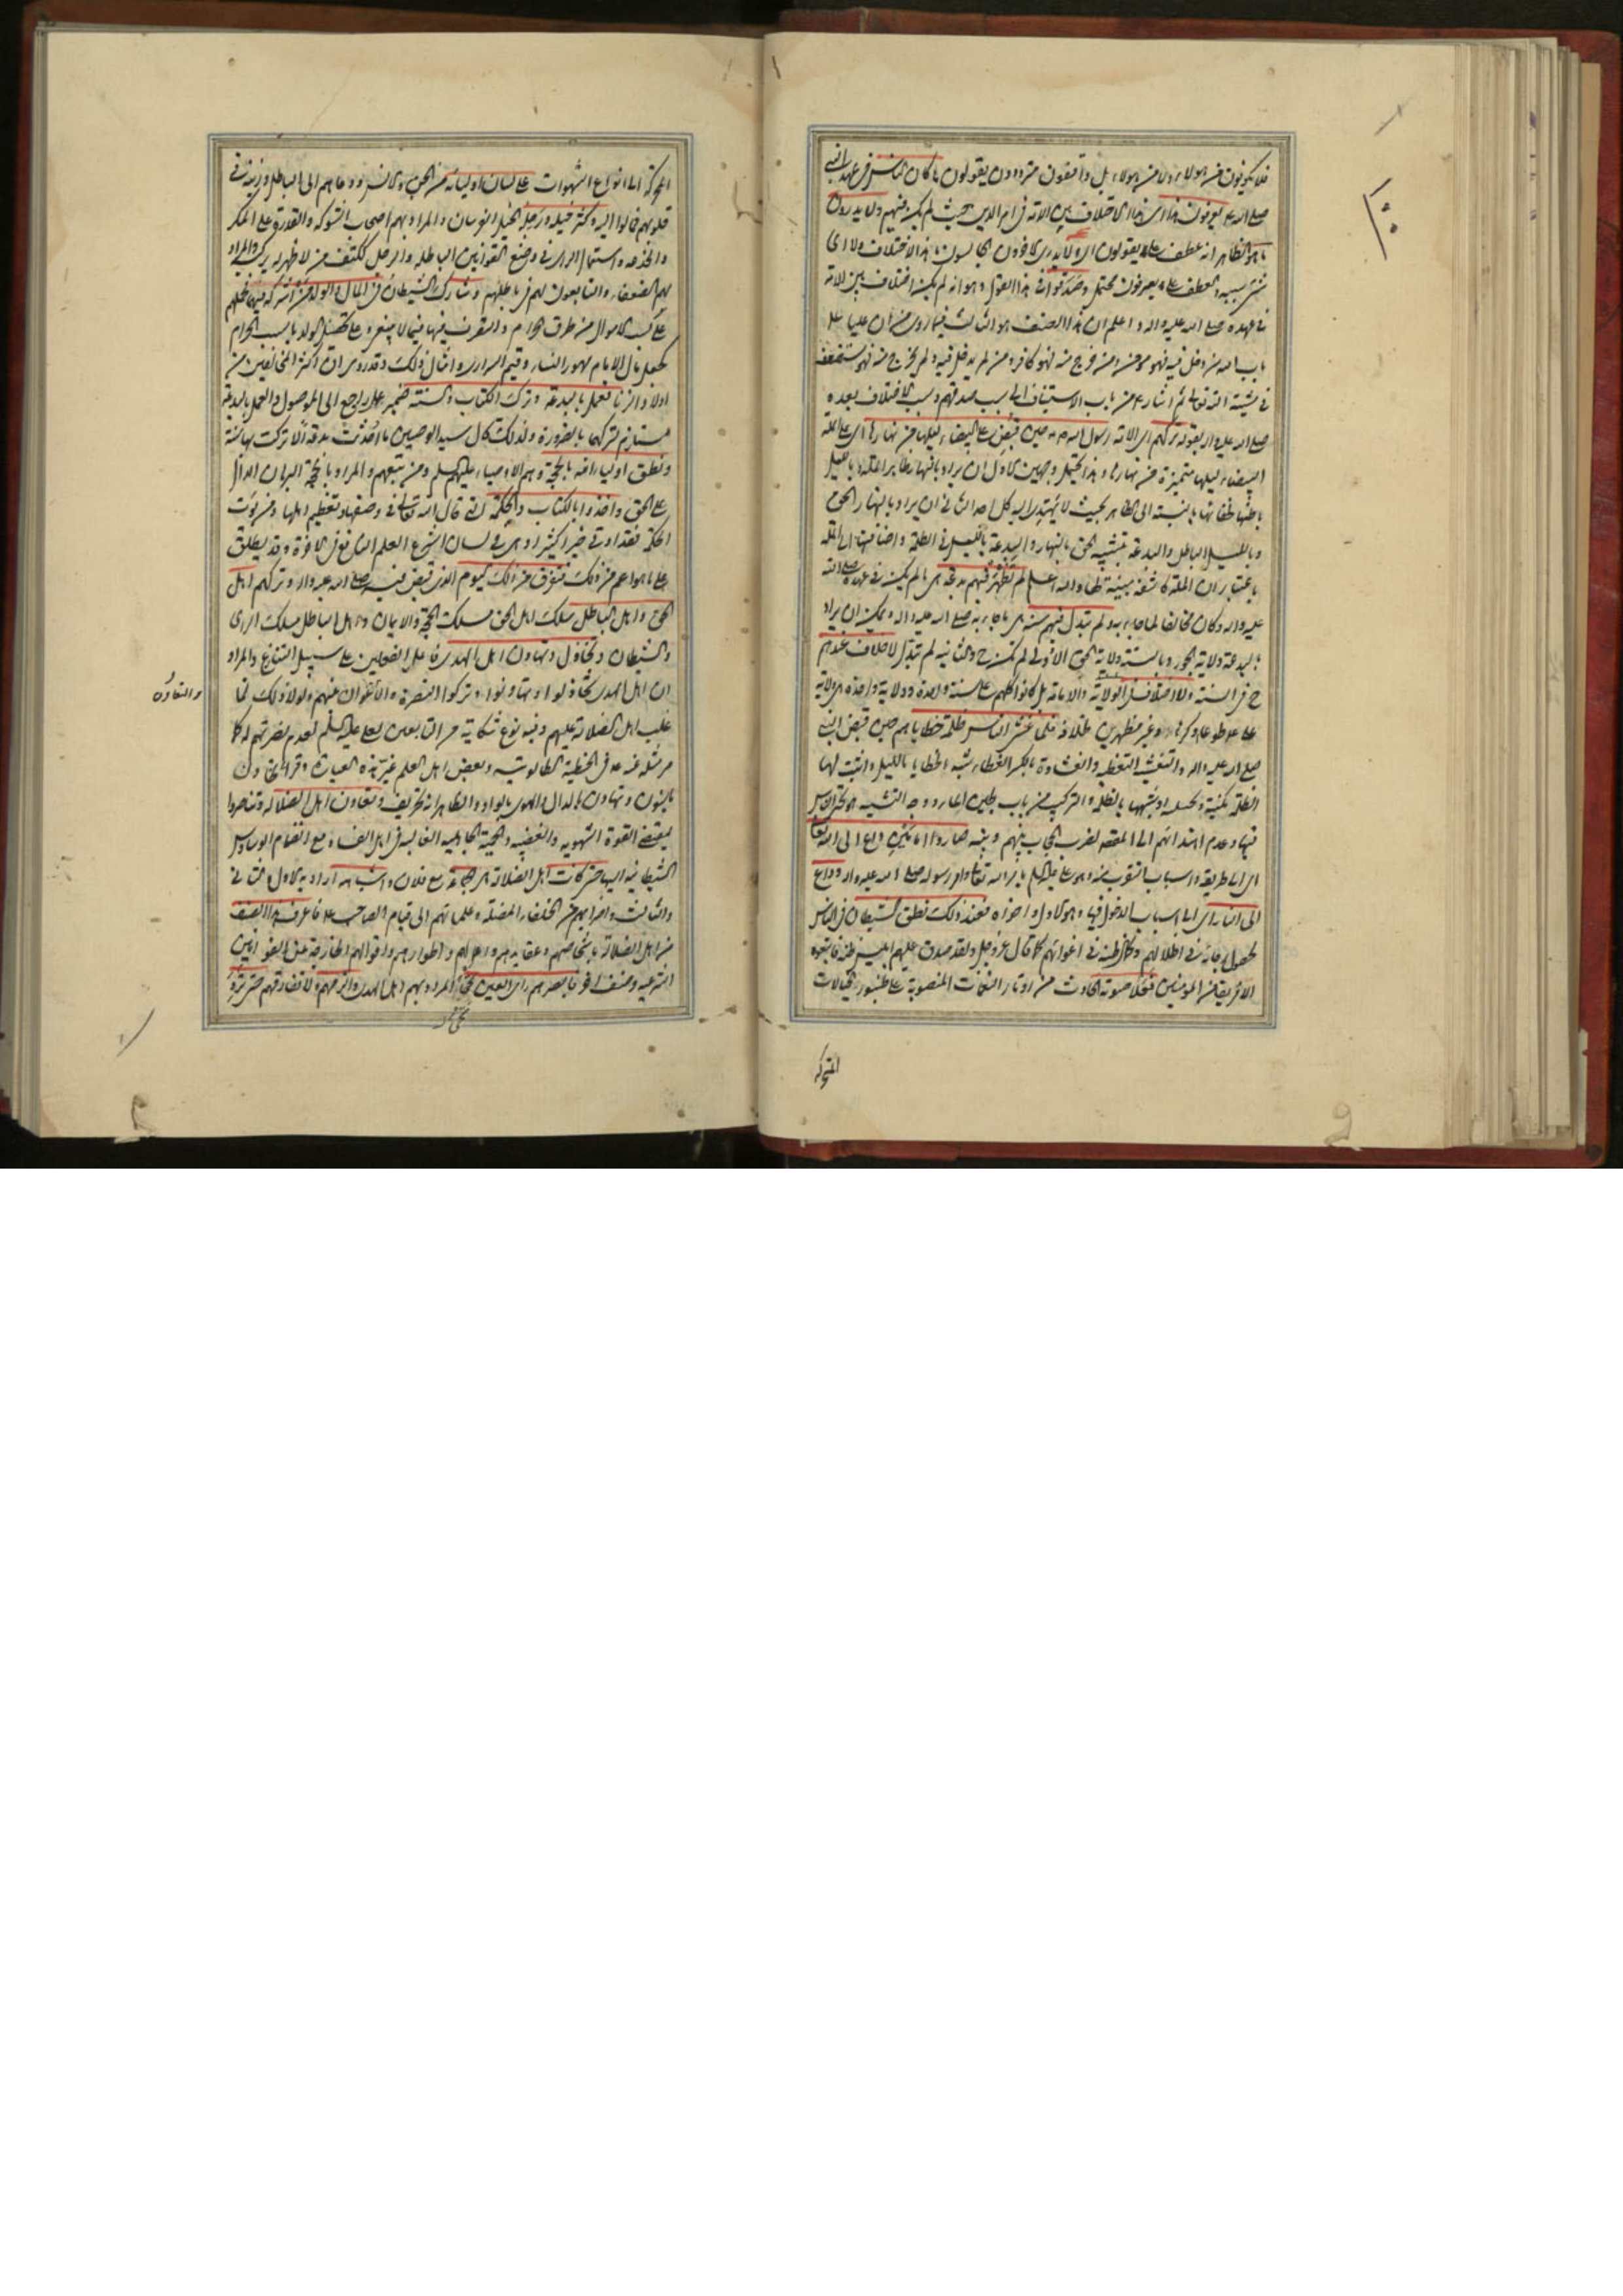 فلا يكونون من هؤلاء ولا من هؤلاء بل واقفون مترددون يقولون ما كان الناس في عهد النبي
صلى الله يعرفون هذا اى هذا الاختلاف بين الامة في امر الدين حيث لم يكن فيهم ولا يدرون
ما هو الظاهر انه عطف على يقولون اى ولا يدرى الكافرون الجالسون ما هذا الاختلاف ولا اى
شئ سببه والعطف على يعرفون محتمل وصدقوا في هذا القول وهو انه لم يكن اختلاف بين الامة
في عهده صلى الله عليه واله واعلم ان هذا الصنف هو الثالث فيما روى من ان عليا عليه
باب الله من دخل فيه فهو مؤمن ومن خرج منه فهو كافر ومن لم يدخل فيه ولم يخرج منه فهو مستضعف
في مشية الله تعالى ثم اشار من باب الاستيناف الى سبب صدقهم وسبب الاختلاف بعده
صلى الله عليه واله بقوله تركهم اى الامة رسول الله ص حين قبض على البيضاء ليلها من نهارها اى على الملة
البيضاء ليلها متميزة من نهارها وهذا يحتمل وجهين الاول ان يراد بالنهار ظاهر الملة وبالليل
باطنها لخفائها بالنسبة الى الظاهر بحيث لا يهتدى اليه كل احد الثاني ان يراد بالنهار الحق
وبالليل الباطل والبدعة بتشبيه الحق بالنهار والبدعة بالليل في الظلمة واضافتها الى الملة
باعتبار ان الملة كاشفة مبينة لها والله اعلم لم تظهر فيهم بدعة اى ما لم يكن في عهده صلى الله
عليه واله وكان مخالفا لما جاء به ولم تبدل فيهم سنة اى ما جاء به صلى الله عليه واله ويمكن ان يراد
بالبدعة ولاية الجور وبالسنة ولاية الحق الاولى لم تكن ح والثانية لم تبدل لا خلاف عندهم
ح في السنة ولا اختلاف في الولاية والامامة بل كانوا كلهم على سنة واحدة وولاية واحدة هى ولاية
على ع طوعا وكرها وغير مظهرين خلافه فلما غشى الناس ظلمة خطاياهم حين قبض النبي
صلى الله عليه واله والتغشية التغطية والغشاوة بالكسر الغطاء شبه الخطايا بالليل واثبت لها
الظلمة مكنية وتخييلية او شبهها بالظلمة والتركيب من باب لجين الماء ووجه التشبيه هو تحير الناس
فيها وعدم اهتدائهم الى المقصد لضرب الحجاب بينهم وبينه صاروا امامين داع الى الله تعالى
اى الى طريقه واسباب التقرب منه وهو على عليه السلم بامر الله تعالى وامر رسوله صلى الله عليه واله وداع
الى النار اى الى اسباب الدخول فيها وهو الاول واخواه فعند ذلك نطق الشيطان في الناس
لحصول رجائه في اضلالهم وكمال ظنه في اغوائهم كما قال عز وجل ولقد صدق عليهم ابليس ظنه فاتبعوه
الا فريقا من المؤمنين فعلا صوته الحادث من اوتار النغمات المنصوبة على طنبور الخيالات
المحركة
المحركة الى انواع الشهوات على لسان اوليائه من الجن والانس ودعاهم الى الباطل وزينه في
قلوبهم فمالوا اليه وكثر خيله ورجله الخيل الفرسان والمراد بهم اصحاب الشوكة والقدرة على المكر
والخدعة واستعمال الراى في وضع القوانين الباطلة والرجل ككتف من لا ظهر له يركبه والمراد
بهم الضعفاء والتابعون لهم في باطلهم وشارك الشيطان في المال والولد من اشركه فيهما فحملهم
على كسب الاموال من طرق الحرام والتصرف فيها فيما لا ينبغى وعلى تحصيل الولد بالسبب الحرام
كجعل مال الامام مهور النساء وقيم السرارى وامثال ذلك وقد روى ان اكثر المخالفين من
اولاد الزنا فعمل بالبدعة وترك الكتاب والسنة ضمير عمل راجع الى الموصول والعمل بالبدعة
مستلزم لتركهما بالضرورة ولذلك قال سيد الوصيين ما احدثت بدعة الا تركت بها سنة
ونطق اولياء الله بالحجة وهم الاوصياء عليهم السلم ومن تبعهم والمراد بالحجة البرهان الدال
على الحق واخذوا بالكتاب والحكمة التي قال الله تعالى في وصفها وتعظيم اهلها ومن يؤت
الحكمة فقد اوتى خيرا كثيرا وهى في لسان الشرع العلم النافع في الاخرة وقد يطلق
على ما هو اعم من ذلك فتفرق من ذلك اليوم الذي قبض فيه صلى الله عليه واله وتركهم اهل
الحق واهل الباطل سلك اهل الحق مسلك الحجة والايمان واهل الباطل مسلك الراى
والشيطان وتخاذل وتهاون اهل الهدى فاعل الفعلين على سبيل التنازع والمراد
ان اهل الهدى تخاذلوا وتهاونوا وتركوا النصرة والتعاون بينهم ولولا ذلك لما
والتعاون
غلب اهل الضلالة عليهم وفيه نوع شكاية من التابعين لعلى عليه السلم لعدم نصرتهم له كما
مر مثله عنه ع في الخطبة الطالوتية وبعض اهل العلم غير هذه العبارة وقرأ
بالنون وتهادن بالدال والهوى بالواو والظاهر انه تحريف وتعاون اهل الضلالة وتناصروا
بمقتضى القوة الشهوية والغضبية والحمية الجاهلية الغالبة في اهل الفساد مع انضمام الوساوس
الشيطانية اليها حتى كانت اهل الضلالة هى الجماعة مع فلان واشباهه اراد به الاول والثاني
والثالث واضرابهم من الخلفاء المضلة وعلمائهم الى قيام الصاحب ع فاعرف هذا الصنف
من اهل الضلالة باشخاصهم وعقايدهم واعمالهم واطوارهم واقوالهم الخارجة عن القوانين
الشرعية وصنف اخر فابصرهم راى العين نجباء المراد بهم اهل الهدى والزمهم ولا تفارقهم حتى ترد